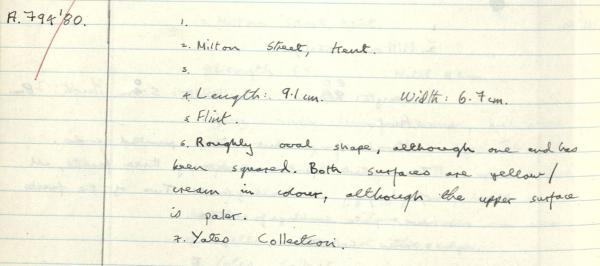 A.794'80.
1.
2. Milton Street, Kent.
3.
4. Length: 9.1 cm. Width: 6.7 cm.
5. Flint.
6. Roughly oval shape, although one end has
been squared. Both surfaces are yellow/
cream in colour, although the upper surface
is paler.
7. Yates Collection.